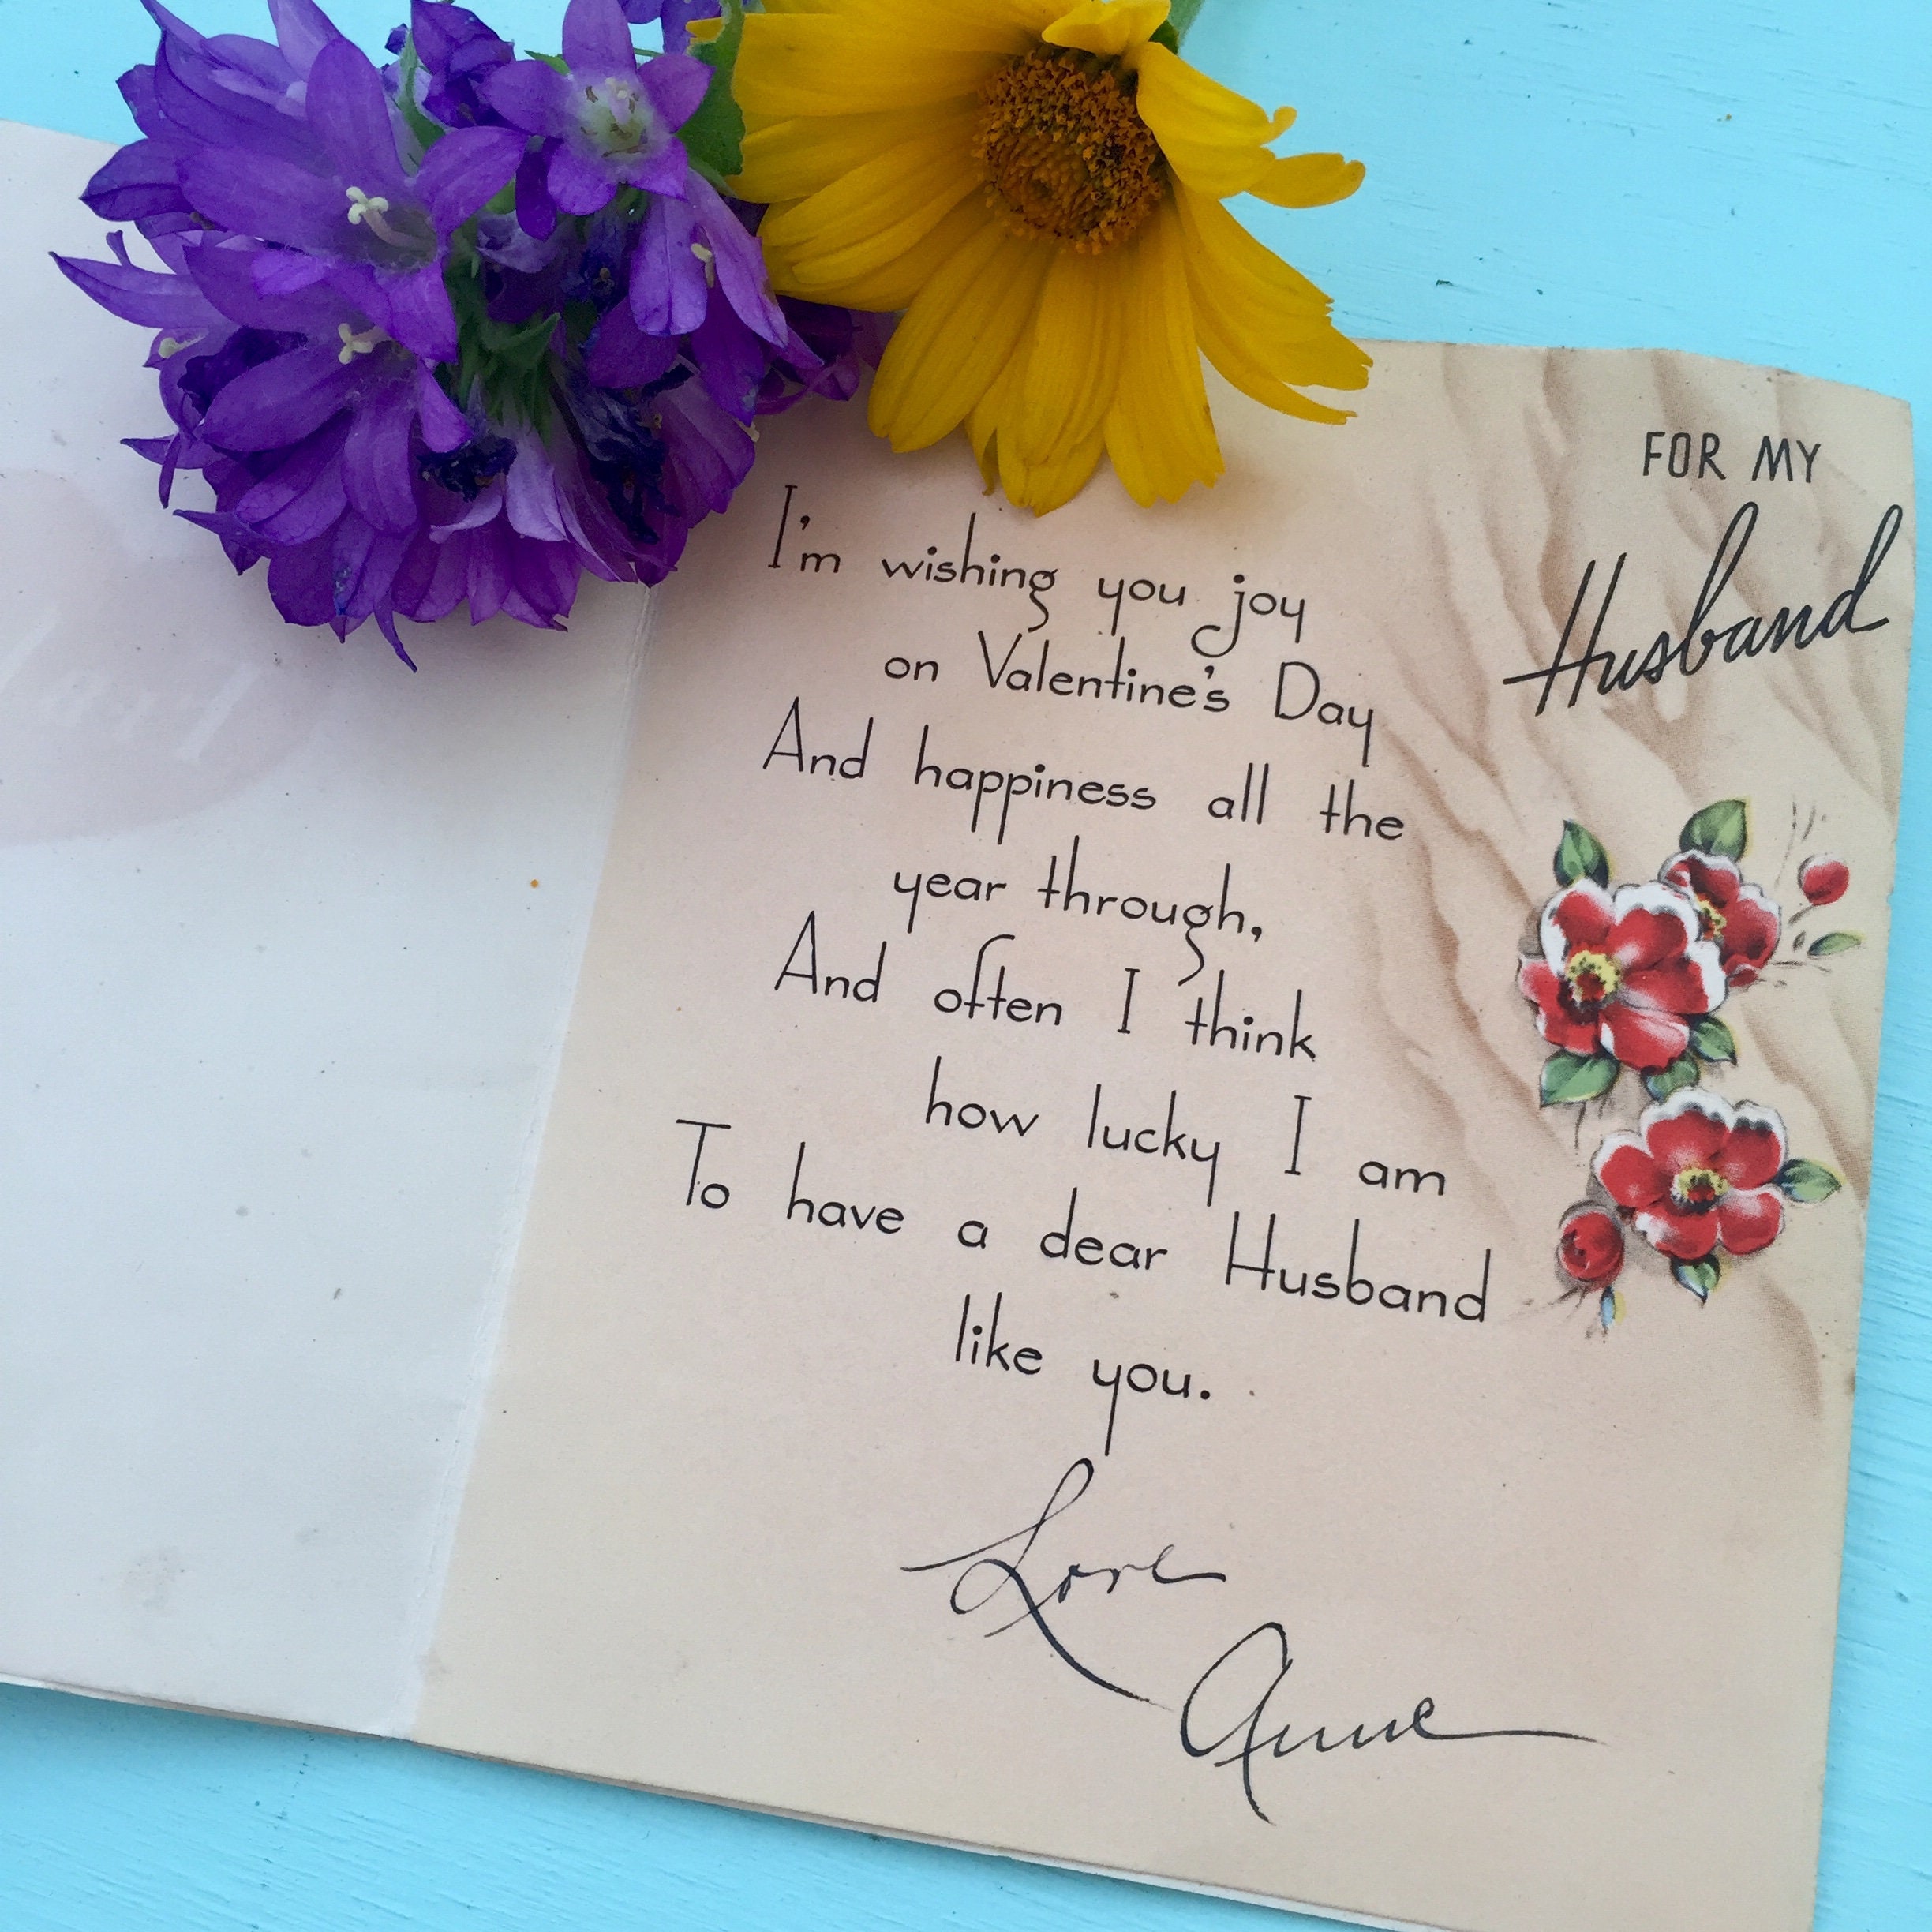 FOR MY
Husband
I'm wishing you joy
on Valentine's Day
And happiness all the
year through,
And often I think
how lucky I am
To have a dear Husband
like you.
Love
Anne